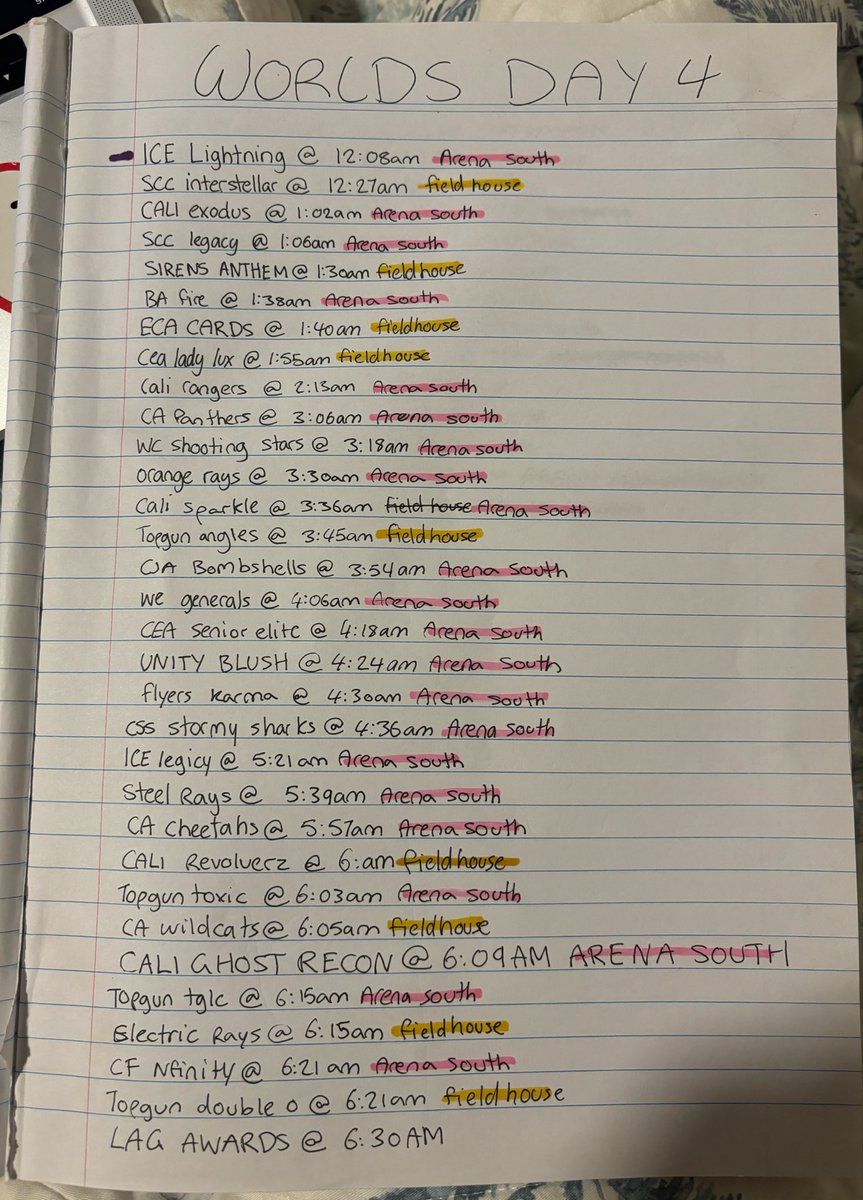 WORLDS DAY 4
ICE Lightning @ 12:08am Arena south
SCC interstellar @ 12:27am field house
CALI exodus @ 1:02am Arena south
SCC legacy @ 1:06am Arena south
SIRENS ANTHEM @ 1:30am fieldhouse
BA fire @ 1:38am Arena south
ECA CARDS @ 1:40am fieldhouse
Cea lady lux @ 1:55am fieldhouse
Cali rangers @ 2:13am Arena south
CA Panthers @ 3:06am Arena south
WC shooting stars @ 3:18am Arena south
orange rays @ 3:30am Arena south
Cali sparkle @ 3:36am field house Arena south
Topgun angles @ 3:45am fieldhouse
OA Bombshells @ 3:54am Arena south
we generals @ 4:06am Arena south
CEA senior elite @ 4:18am Arena south
UNITY BLUSH @ 4:24am Arena south
flyers karma @ 4:30am Arena south
CSS stormy sharks @ 4:36am Arena south
ICE legicy @ 5:21am Arena south
Steel Rays @ 5:39am Arena south
CA Cheetahs @ 5:57am Arena south
CALI Revolverz @ 6:am fieldhouse
Topgun toxic @ 6:03am Arena south
CA wildcats @ 6:05am fieldhouse
CALI GHOST RECON @ 6:09AM ARENA SOUTH
Topgun tglc @ 6:15am Arena south
Electric Rays @ 6:15am fieldhouse
CF Nfinity @ 6:21am Arena south
Topgun double o @ 6:21am fieldhouse
LAG AWARDS @ 6:30AM